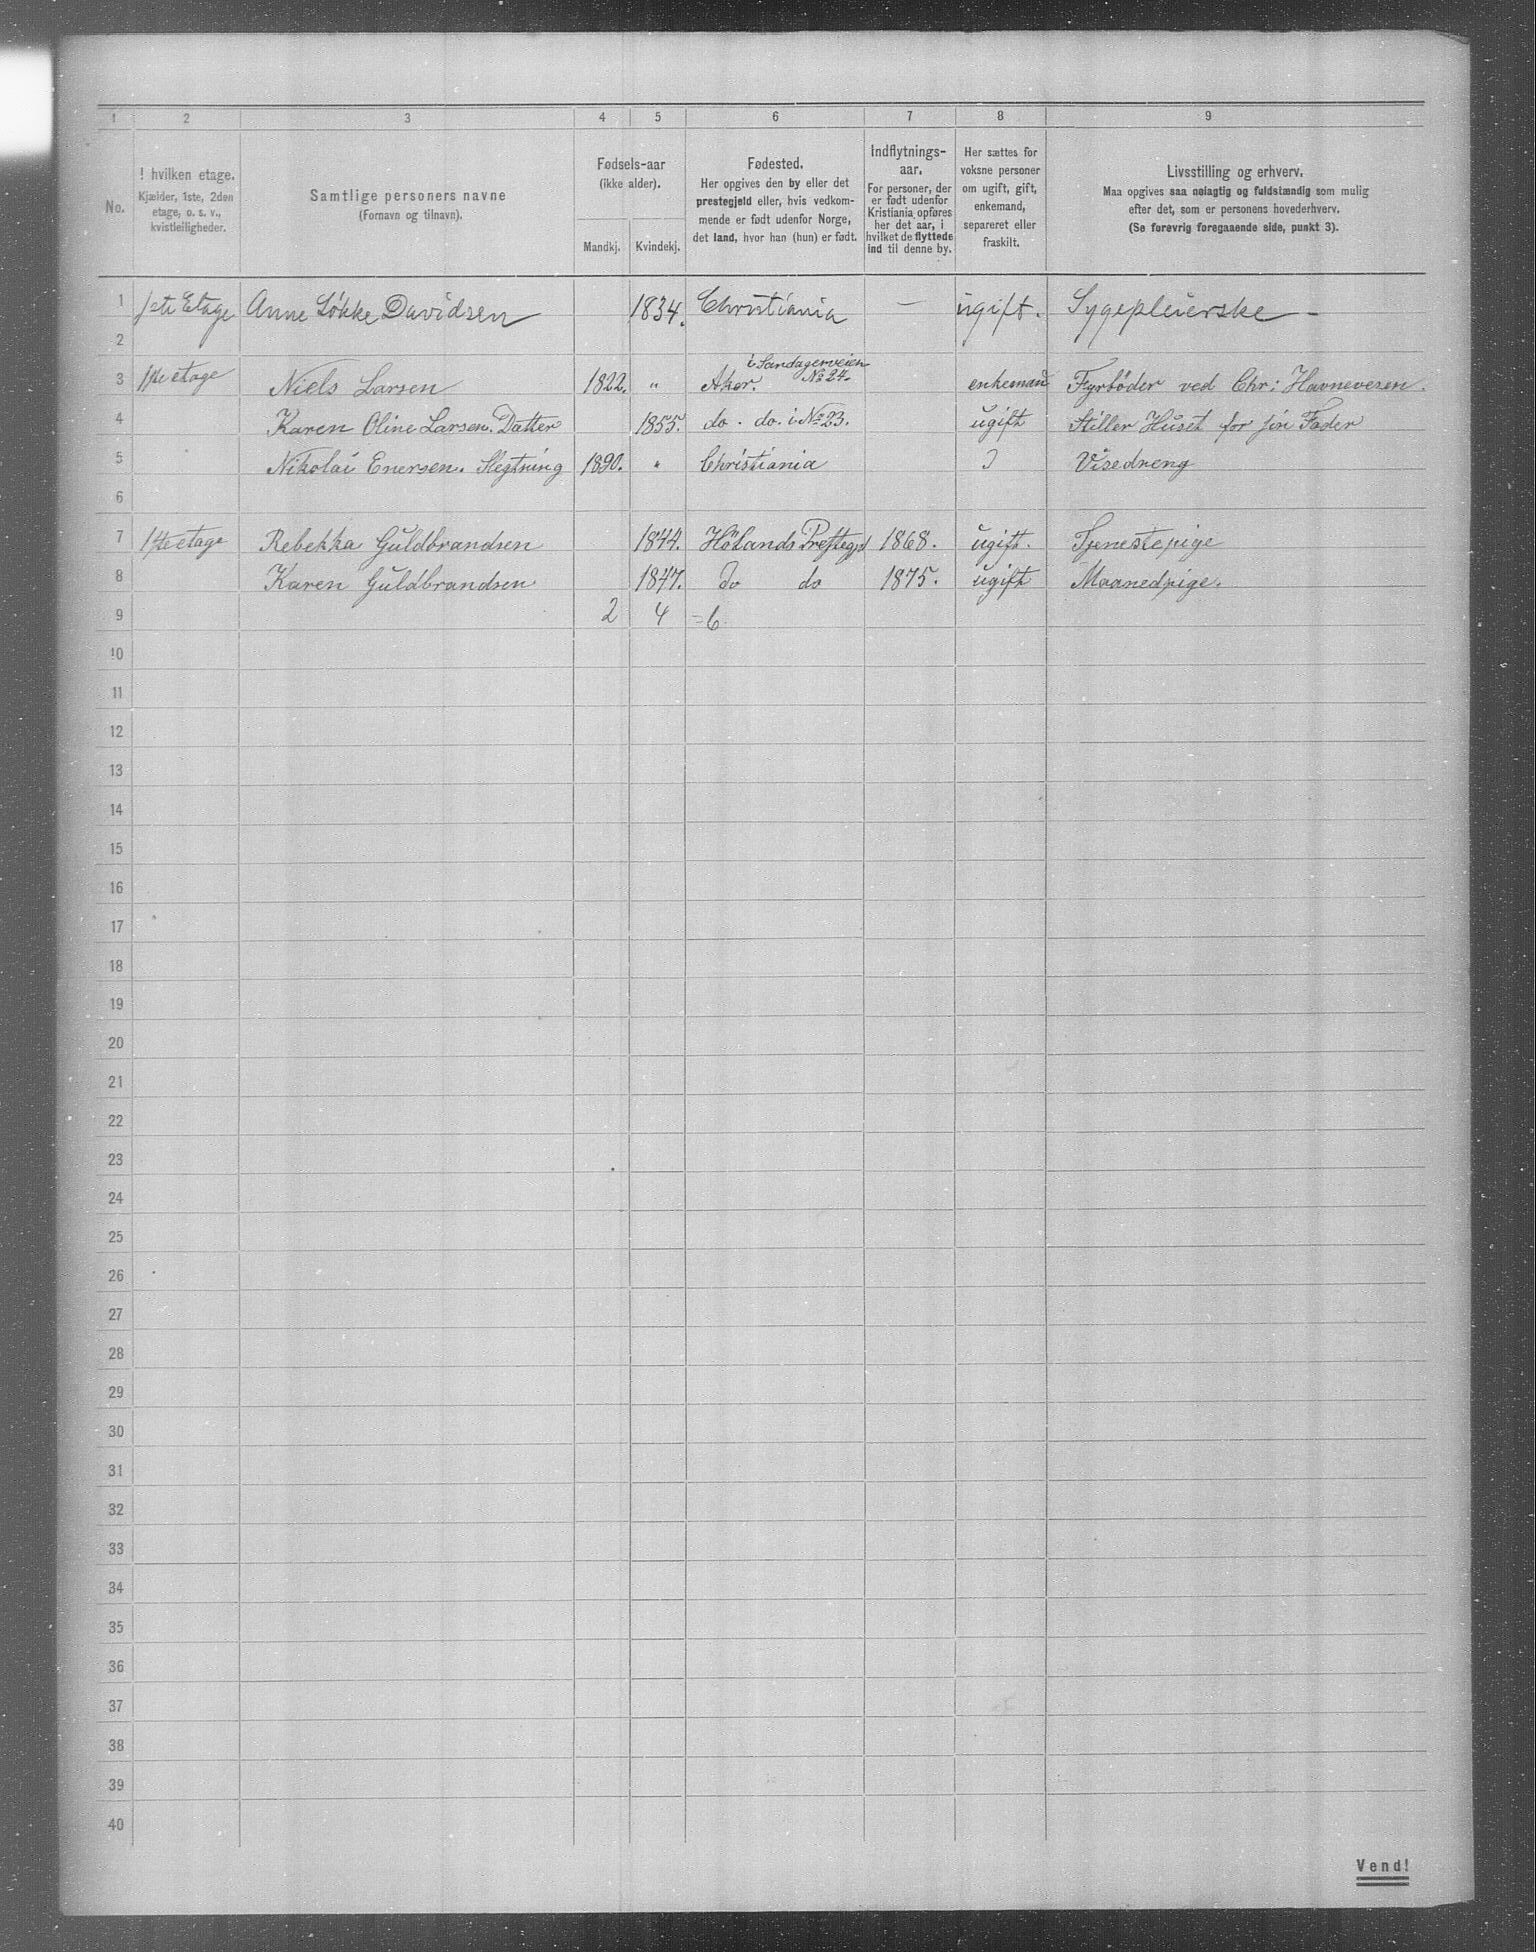 1 2 3 4 5 6 7 8 9
No.
I hvilken etage.
Kjælder, 1ste, 2den
etage, o. s. v.,
kvistleiligheder.
Samtlige personers navne
(Fornavn og tilnavn).
Fødsels-aar
(ikke alder).
Mandkj. Kvindekj.
Fødested.
Her opgives den by eller det
prestegjeld eller, hvis vedkom-
mende er født udenfor Norge,
det land, hvor han (hun) er født.
Indflytnings-
aar.
For personer, der
er født udenfor
Kristiania opføres
her det aar, i
hvilket de flyttede
ind til denne by.
Her sættes for
voksne personer
om ugift, gift,
enkemand,
separeret eller
fraskilt.
Livsstilling og erhverv.
Maa opgives saa nøiagtig og fuldstændig som mulig
efter det, som er personens hovederhverv.
(Se forøvrig foregaaende side, punkt 3).
1 1ste Etage Anne Løkke Davidsen 1834. Christiania — ugift. Sygepleierske —
2
i Sandagerveien
3 1ste etage Niels Larsen 1822. " Aker. No 24. enkemand Fyrbøder ved Chr: Havnevesen.
4 Karen Oline Larsen. Datter 1855. do. do. i No 23. ugift Stiller Huset for sin Fader
5 Nikolai Enersen. Slegtning 1890. " Christiania Visedreng
6
7 1ste etage Rebekka Guldbrandsen 1844. Hölands Prestegjd 1868. ugift. Tjenestepige
8 Karen Guldbrandsen 1847. do do 1875. ugift Maanedpige.
9 2 4 =6
10
11
12
13
14
15
16
17
18
19
20
21
22
23
24
25
26
27
28
29
30
31
32
33
34
35
36
37
38
39
40
Vend!